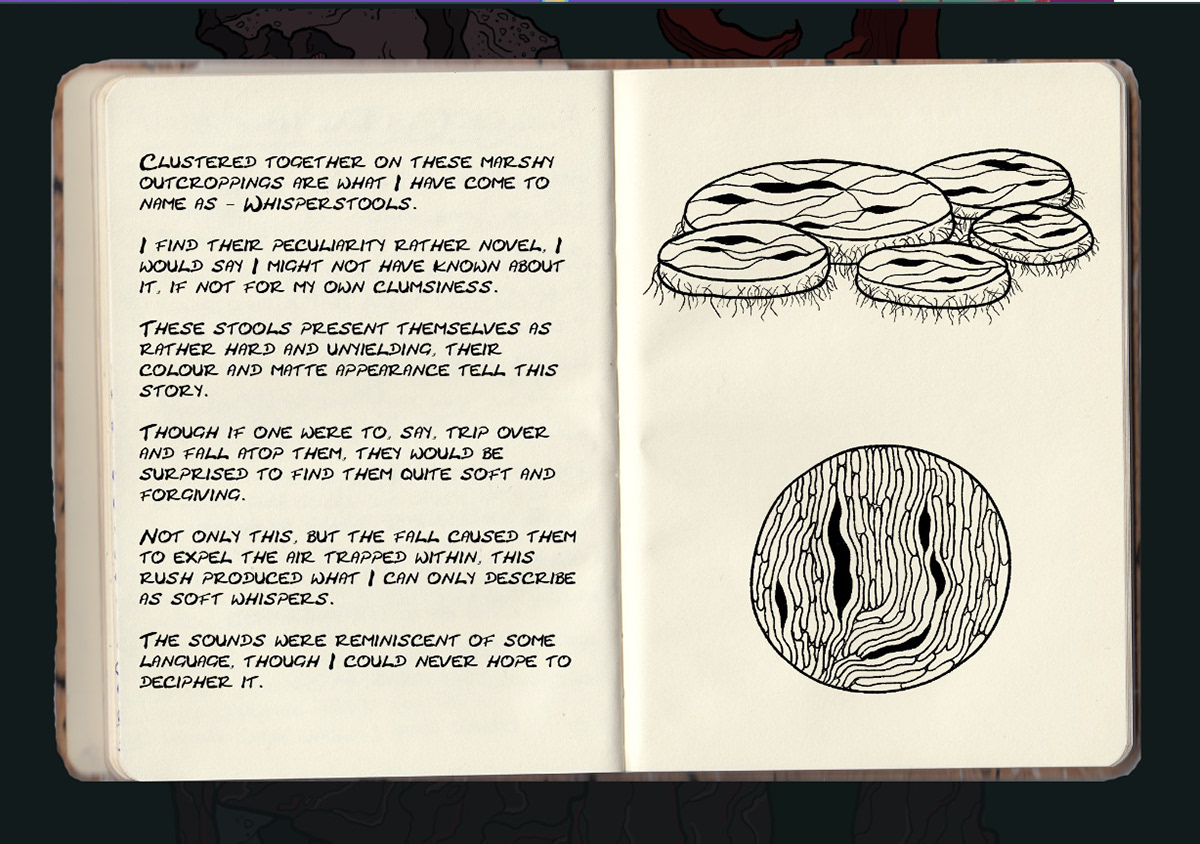 Clustered together on these marshy
outcroppings are what I have come to
name as - Whisperstools.
I find their peculiarity rather novel, I
would say I might not have known about
it, if not for my own clumsiness.
These stools present themselves as
rather hard and unyielding, their
colour and matte appearance tell this
story.
Though if one were to, say, trip over
and fall atop them, they would be
surprised to find them quite soft and
forgiving.
Not only this, but the fall caused them
to expel the air trapped within, this
rush produced what I can only describe
as soft whispers.
The sounds were reminiscent of some
language, though I could never hope to
decipher it.